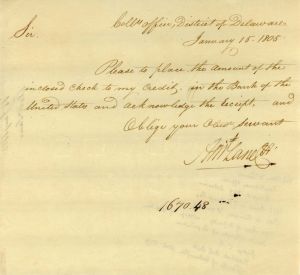 Coll.rs office, District of Delaware
January 15. 1805.
Sir.
Please to place the amount of the
inclosed Check to my Credit, in the Bank of the
United States and acknowledge the receipt, and
Oblige your Obed.t servant
1670.48